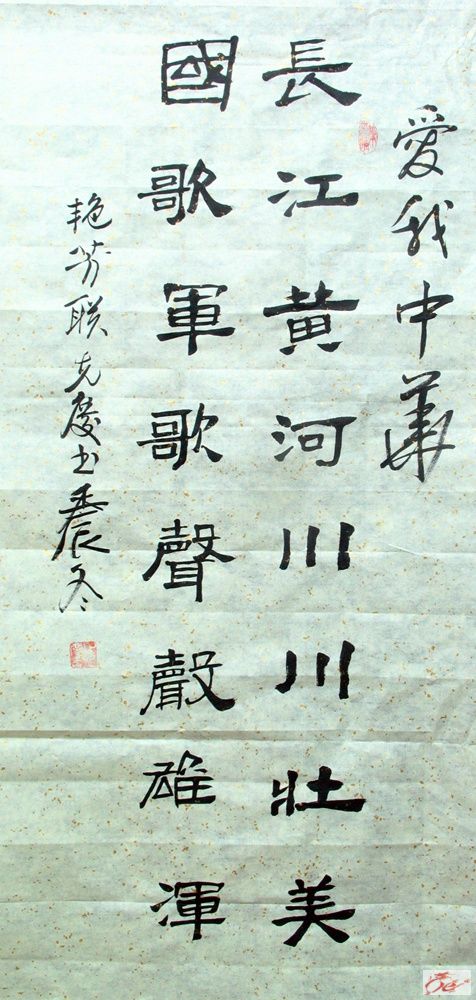 愛我中華
長江黄河川川壯美
國歌軍歌聲聲雄渾
艳芳联克慶书冬